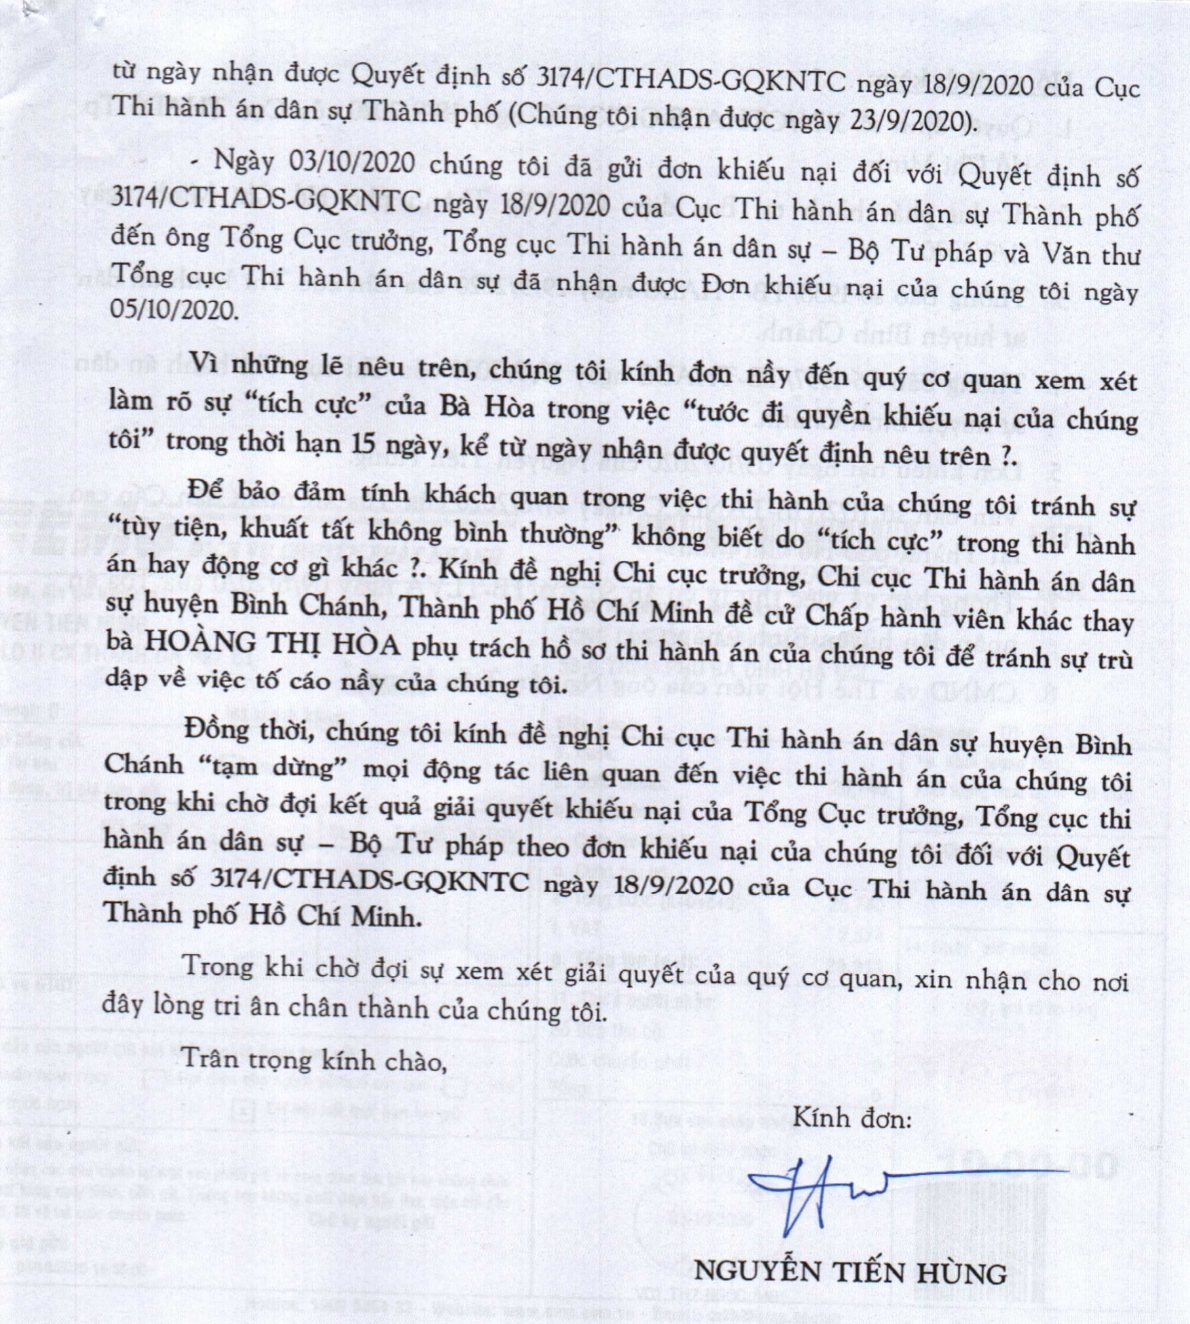 từ ngày nhận được Quyết định số 3174/CTHADS-GQKNTC ngày 18/9/2020 của Cục
Thi hành án dân sự Thành phố (Chúng tôi nhận được ngày 23/9/2020).
- Ngày 03/10/2020 chúng tôi đã gửi đơn khiếu nại đối với Quyết định số
3174/CTHADS-GQKNTC ngày 18/9/2020 của Cục Thi hành án dân sự Thành phố
đến ông Tổng Cục trưởng, Tổng cục Thi hành án dân sự – Bộ Tư pháp và Văn thư
Tổng cục Thi hành án dân sự đã nhận được Đơn khiếu nại của chúng tôi ngày
05/10/2020.
Vì những lẽ nêu trên, chúng tôi kính đơn nầy đến quý cơ quan xem xét
làm rõ sự “tích cực” của Bà Hòa trong việc “tước đi quyền khiếu nại của chúng
tôi” trong thời hạn 15 ngày, kể từ ngày nhận được quyết định nêu trên ?.
Để bảo đảm tính khách quan trong việc thi hành của chúng tôi tránh sự
“tùy tiện, khuất tất không bình thường” không biết do “tích cực” trong thi hành
án hay động cơ gì khác ?. Kính đề nghị Chi cục trưởng, Chi cục Thi hành án dân
sự huyện Bình Chánh, Thành phố Hồ Chí Minh đề cử Chấp hành viên khác thay
bà HOÀNG THỊ HÒA phụ trách hồ sơ thi hành án của chúng tôi để tránh sự trù
dập về việc tố cáo nầy của chúng tôi.
Đồng thời, chúng tôi kính đề nghị Chi cục Thi hành án dân sự huyện Bình
Chánh “tạm dừng” mọi động tác liên quan đến việc thi hành án của chúng tôi
trong khi chờ đợi kết quả giải quyết khiếu nại của Tổng Cục trưởng, Tổng cục thi
hành án dân sự – Bộ Tư pháp theo đơn khiếu nại của chúng tôi đối với Quyết
định số 3174/CTHADS-GQKNTC ngày 18/9/2020 của Cục Thi hành án dân sự
Thành phố Hồ Chí Minh.
Trong khi chờ đợi sự xem xét giải quyết của quý cơ quan, xin nhận cho nơi
đây lòng tri ân chân thành của chúng tôi.
Trân trọng kính chào,
Kính đơn:
NGUYỄN TIẾN HÙNG